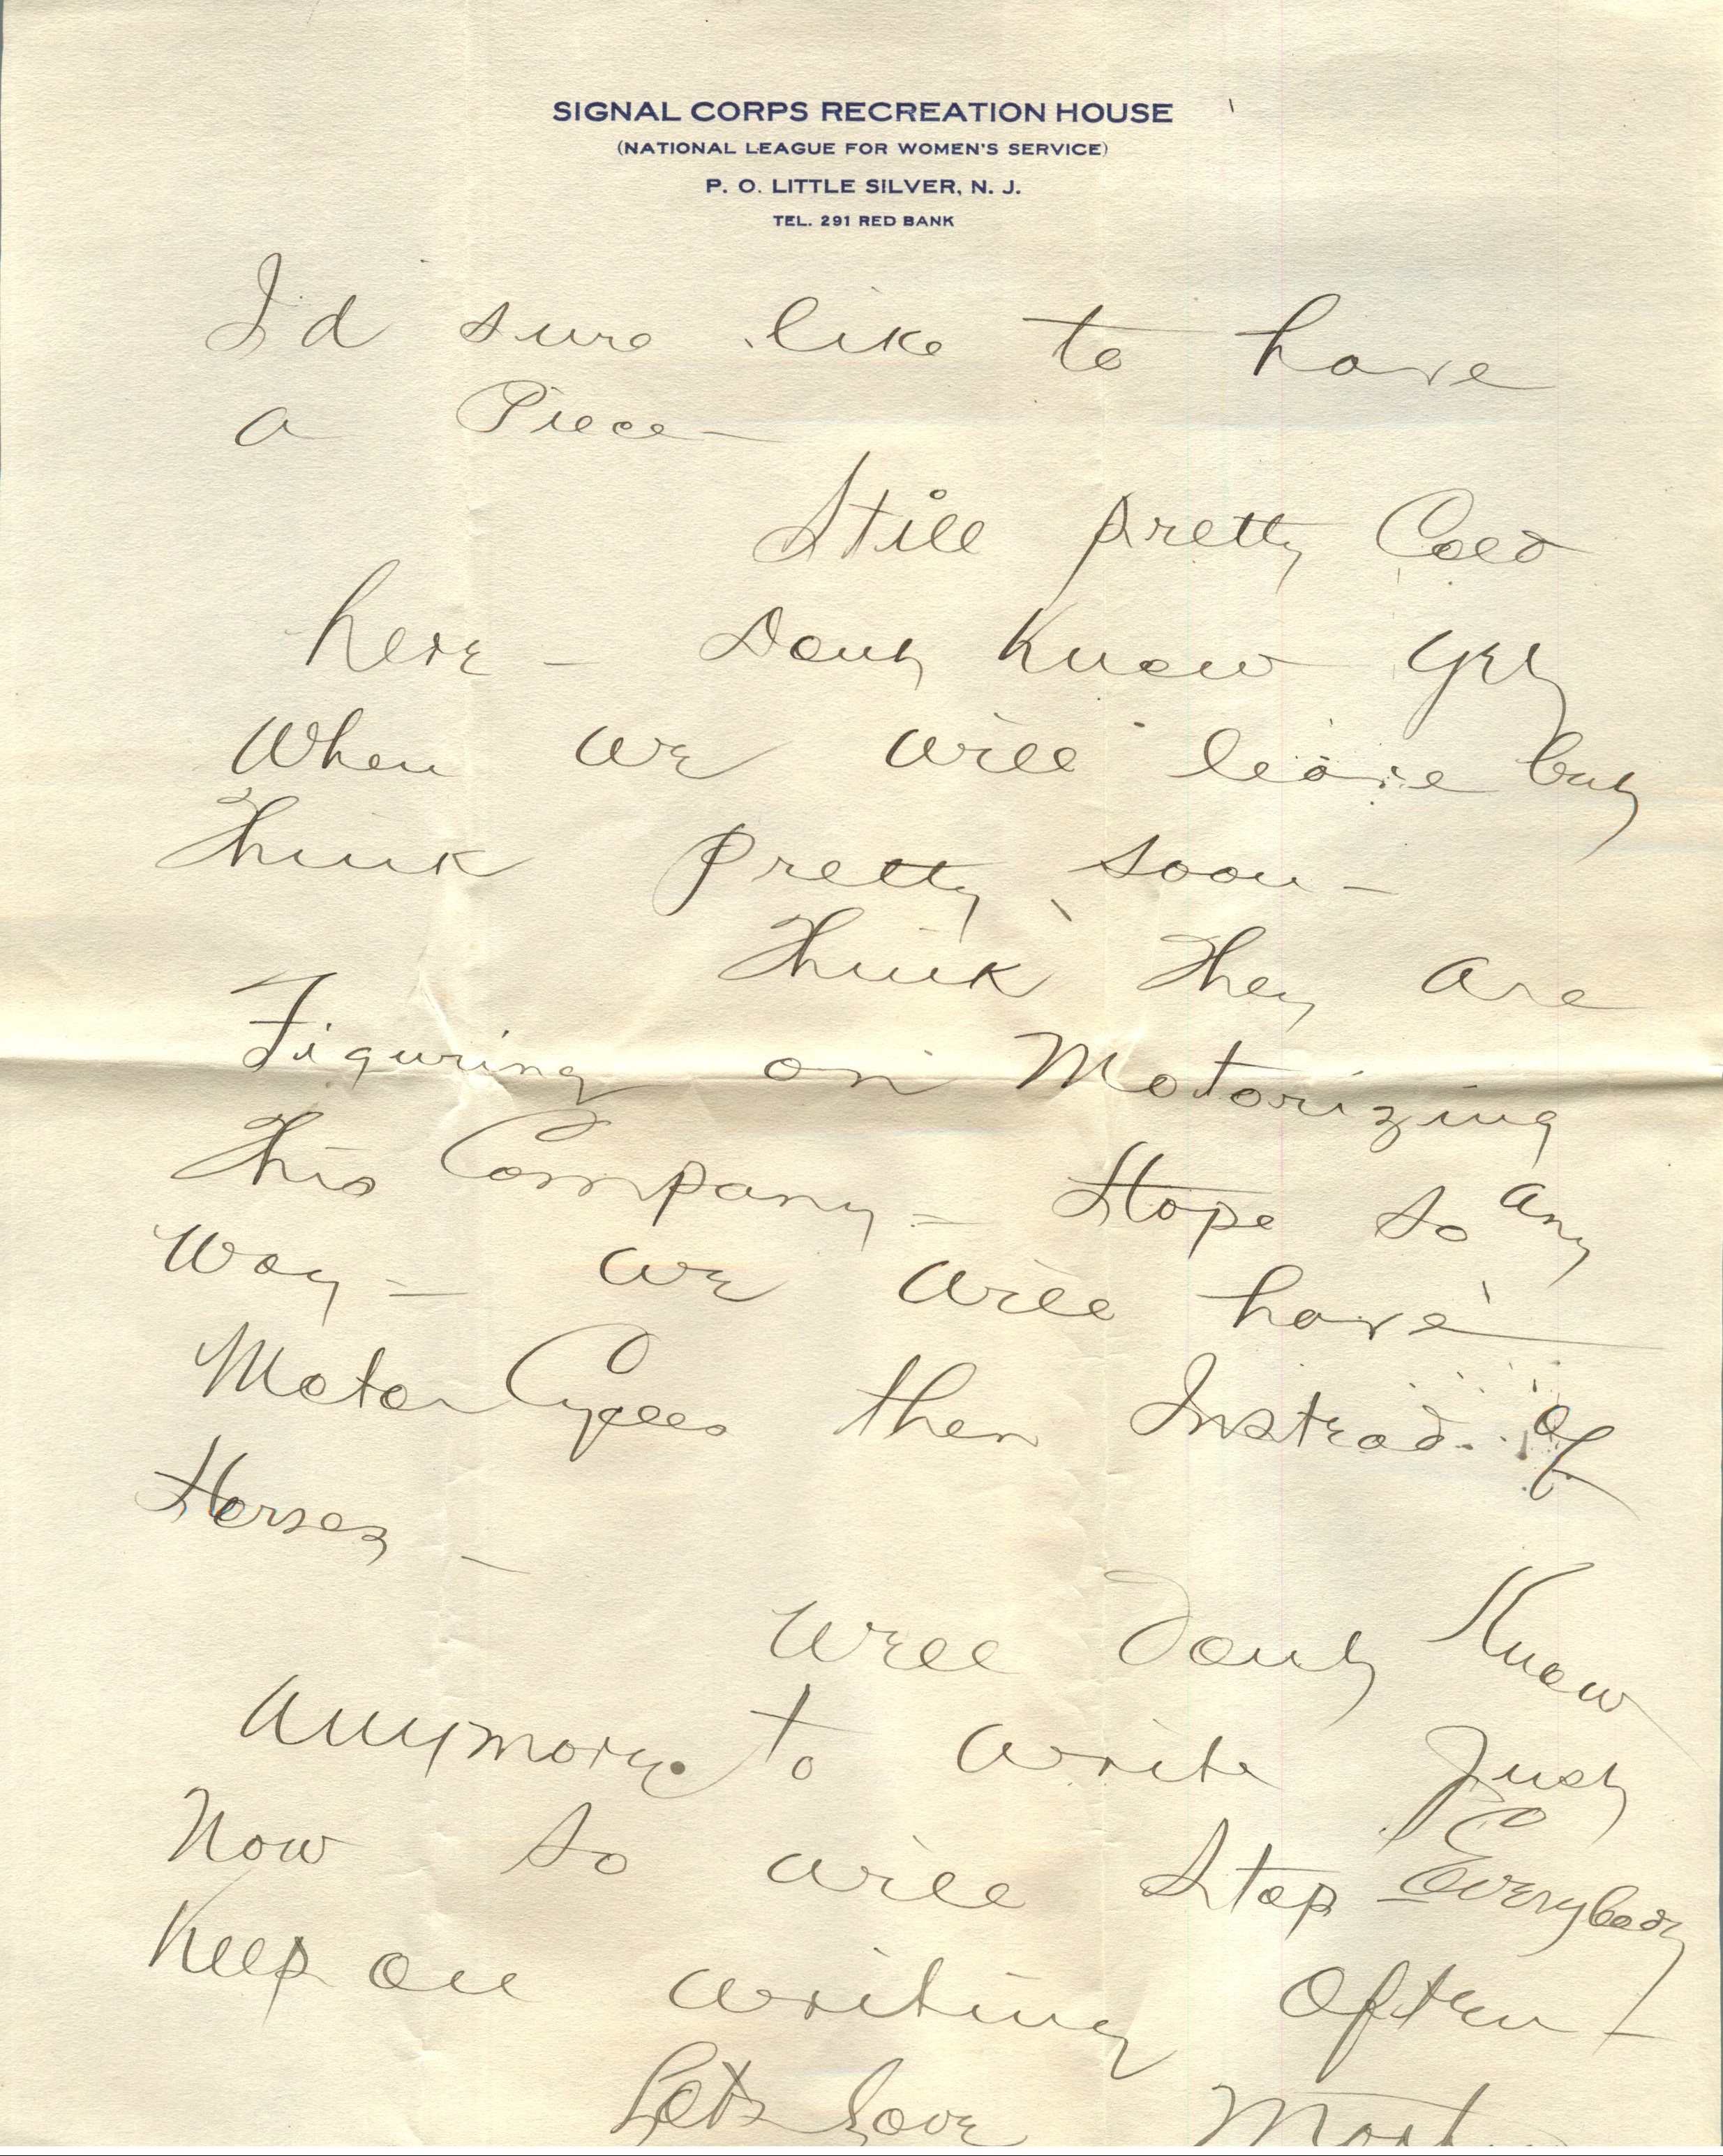 SIGNAL CORPS RECREATION HOUSE
(NATIONAL LEAGUE FOR WOMEN'S SERVICE)
P. O. LITTLE SILVER, N. J.
TEL. 291 RED BANK
I'd sure like to have
a Piece—
Still pretty Cold
here — Dont Know yet
When we will leave but
Think pretty soon —
Think They are
Figuring on Motorizing
This Company — Hope so any
way — we will have
Motor Cycles then Instead of
Horses —
Well Dont Know
Anymore to write Just
Now so will Stop Everybody
Keep on writing Often —
Lots Love